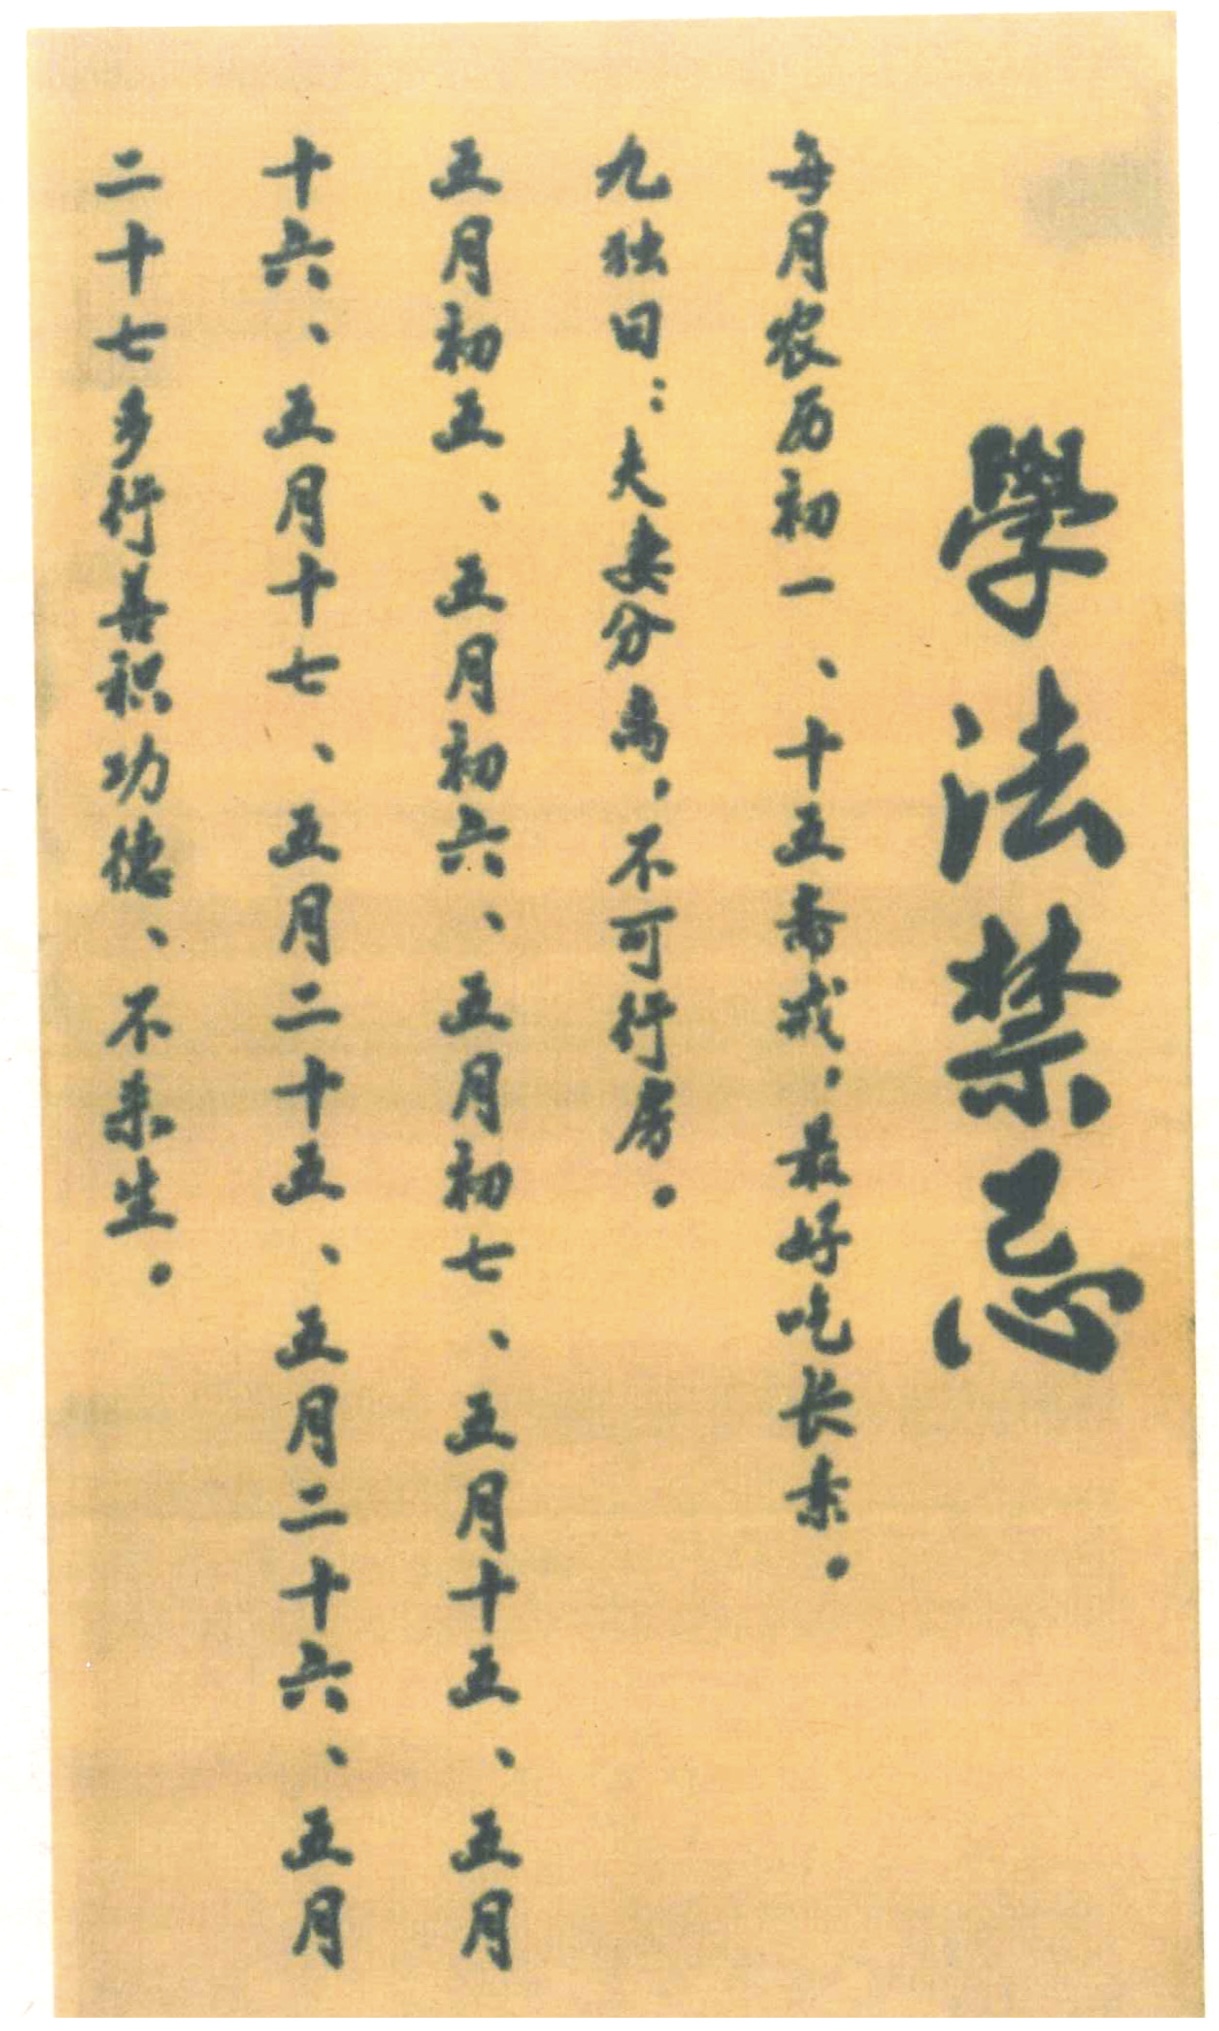 學法禁忌
每月农历初一、十五斋戒,最好吃长素。
九独日:夫妻分离,不可行房。
五月初五、五月初六、五月初七、五月十五、五月
十六、五月十七、五月二十五、五月二十六、五月
二十七多行善积功德、不杀生。